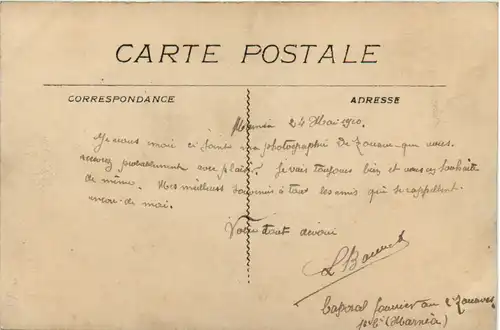 CARTE POSTALE
CORRESPONDANCE
ADRESSE
24 Mai 1910.
Je vous envoie ci joint ma photographie de Zouave que vous
recevrez probablement avec plaisir. Je vais toujours bien et vous en souhaite
de même. Mes meilleurs souvenirs à tous les amis qui se rappellent
de moi.
Votre tout dévoué
Caporal fourrier au 2e Zouaves
(Marnia)